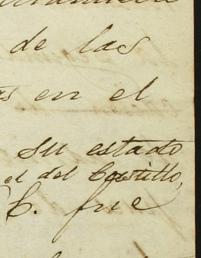 de las
as en el
su estado
el del Castillo,
C. fue